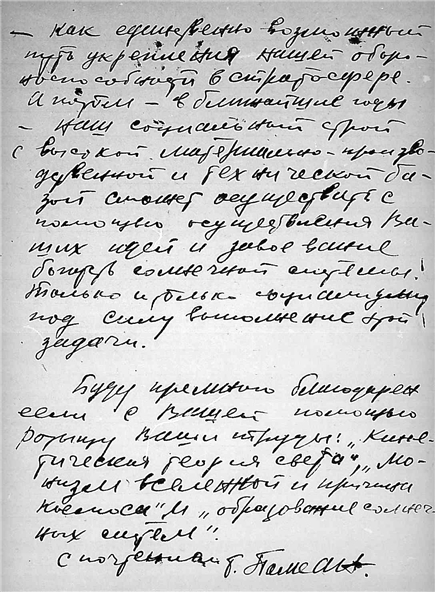 – как единственно возможный
путь укрепления нашей оборо-
носпособности в стратосфере.
А потом – в ближайшие годы
– наш социальный строй
с высокой материально-произво-
дственной и технической ба-
зой сможет осуществить с
помощью осуществления Ва-
ших идей и завоевание
солнечной системы!
Только и только социализму
под силу выполнение этой
задачи.
Буду премного благодарен
если с Вашей помощью
розыщу Ваши труды: „Кине-
тическая теория света", „Мо-
низм вселенной и причина
космоса" и „образование солнеч-
ных систем".
с почтением